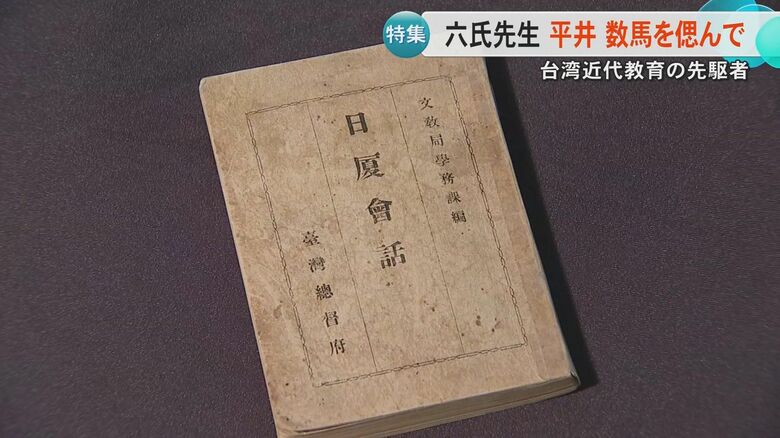 特集
六氏先生 平井 数馬を偲んで
台湾近代教育の先駆者
文敎局學務課編
日廈會話
臺灣總督府